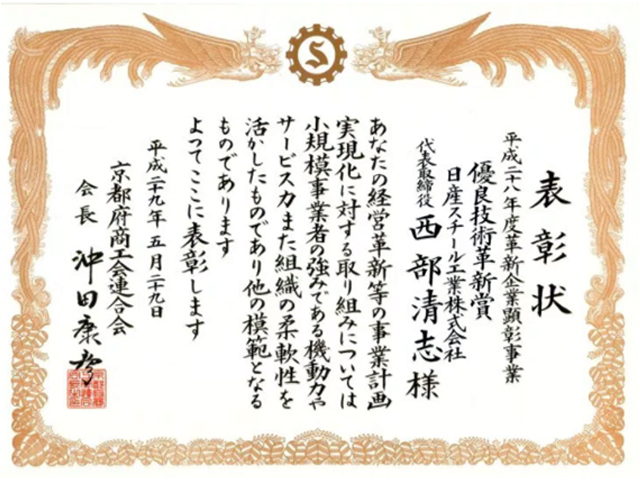 表彰状
平成二十八年度革新企業顕彰事業
優良技術革新賞
日産スチール工業株式会社
代表取締役 西部清志様
あなたの経営革新等の事業計画
実現化に対する取り組みについては
小規模事業者の強みである機動力や
サービス力また組織の柔軟性を
活かしたものであり他の模範となる
ものであります
よってここに表彰します
平成二十九年五月二十九日
京都府商工会連合会
会長 沖田康
S